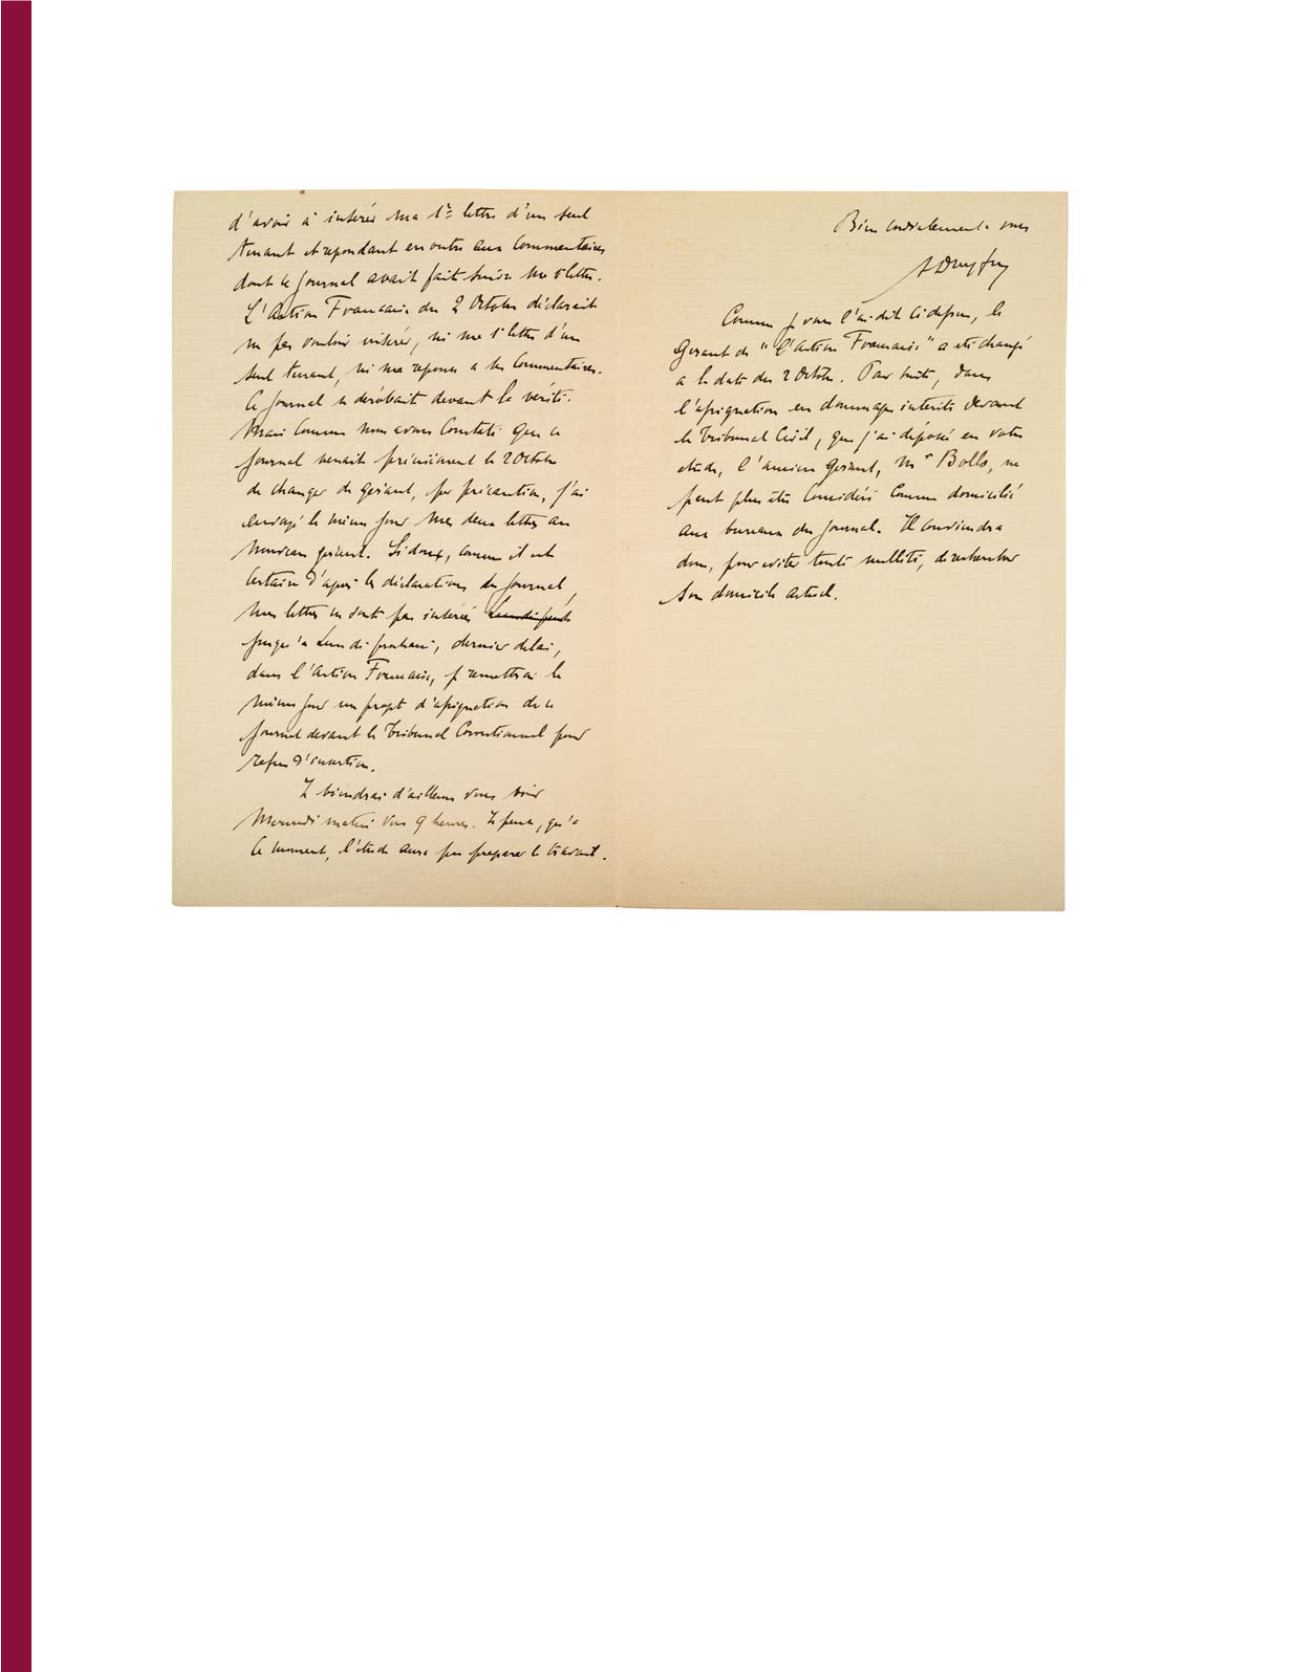 d'avoir à insérer ma 1re lettre d'un seul
tenant et repondant en outre aux Commentaires
dont le journal avait fait suivre ma lettre.
L'Action Francaise du 2 Octobre déclarait
ne pas vouloir insérer, ni ma 1e lettre d'un
seul tenant, ni ma reponse a ses Commentaires.
Ce journal se dérobait devant la vérité.
Mais Comme nous avons Constaté que ce
journal venait précisément le 2 Octobre
de changer de gérant, par précaution, j'ai
envoyé le même jour mes deux lettres au
nouveau gérant. Si donc, comme il est
Certain d'apres les déclarations du journal,
mes lettres ne sont pas insérées
jusqu'a Lundi prochain, dernier delai,
dans l'Action Francaise, je remettrai le
même jour un projet d'assignation de ce
journal devant le Tribunal Correctionnel pour
refus d'insertion.
Je viendrai d'ailleurs vous voir
Mercredi matin vers 9 heures. Je pense, qu'a
Ce moment, l'étude aura pu preparer le travail.
Bien cordialement a vous
A Dreyfus
Comme je vous l'ai dit ci dessus, le
Gerant de "l'Action Francaise" a été changé
a la date du 2 Octobre. Par suite, dans
l'assignation en dommages interêts devant
le Tribunal Civil, que j'ai déposé en votre
etude, l'ancien Gerant, Mr Bollo, ne
peut plus être Considéré Comme domicilié
aux bureaux du journal. Il conviendra
donc, pour eviter toute nullité, de rechercher
son domicile actuel.